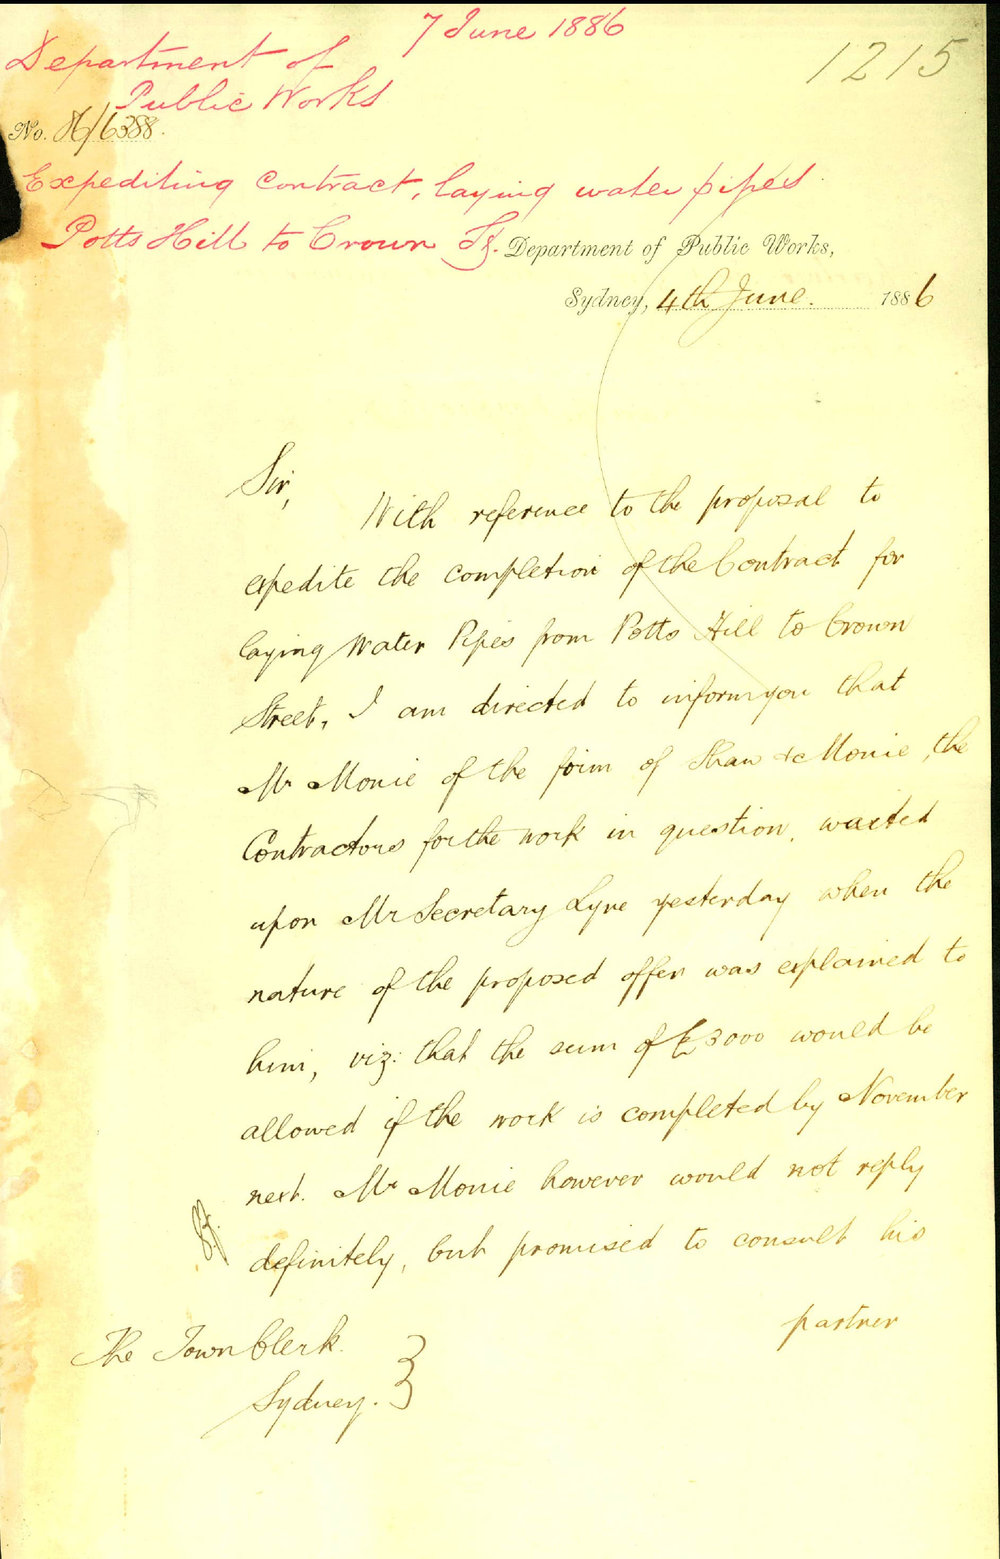 7 June 1886
1215
Department of
Public Works
No. 86/6388.
Expediting contract, laying water pipes
Potts Hill to Crown St.
Department of Public Works,
Sydney, 4th June. 1886
Sir,
With reference to the proposal to
expedite the completion of the Contract for
laying Water Pipes from Potts Hill to Crown
Street, I am directed to inform you that
Mr Monie of the firm of Shaw & Monie, the
Contractors for the work in question, waited
upon Mr Secretary Lyne yesterday when the
nature of the proposed offer was explained to
him, viz: that the sum of £3000 would be
allowed if the work is completed by November
next. Mr Monie however would not reply
definitely, but promised to consult his
partner
The Town Clerk.
Sydney.